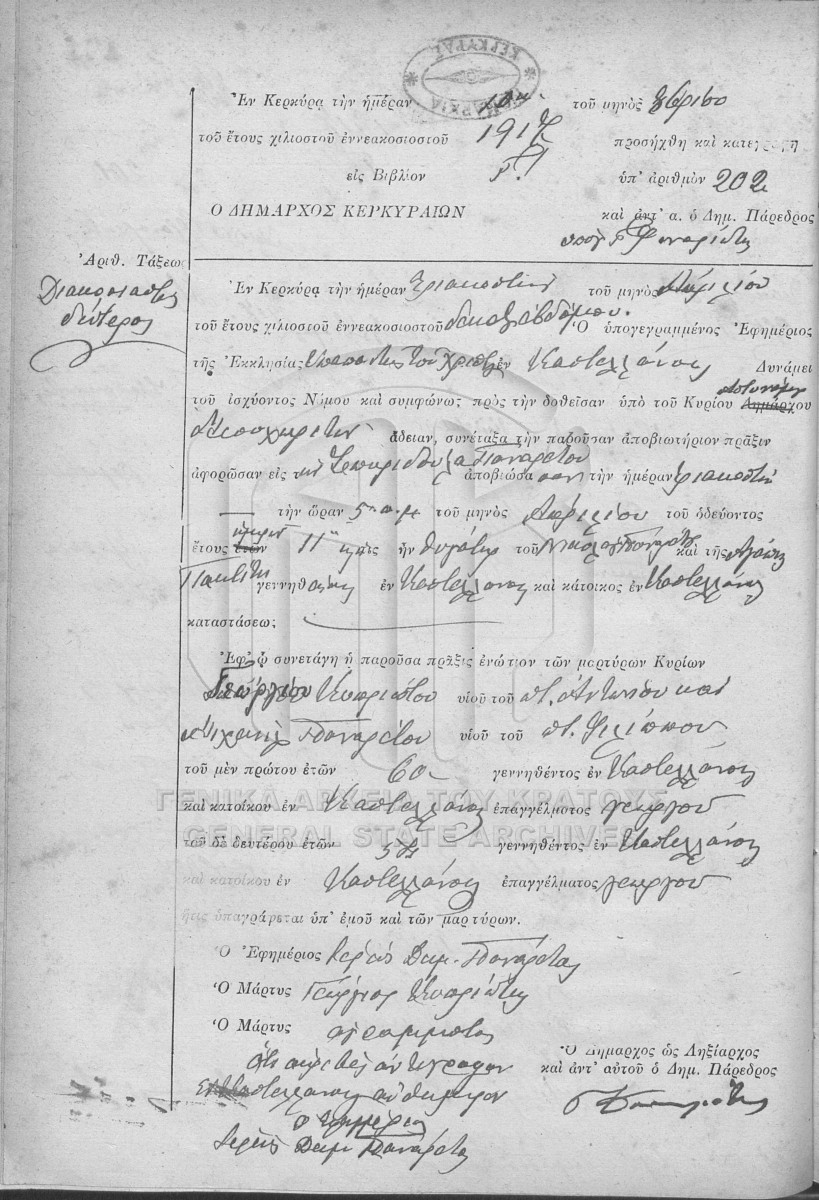 ΔΗΜΑΡΧΙΑ ΚΕΡΚΥΡΑΣ
Ἐν Κερκύρᾳ τὴν ἡμέραν τοῦ μηνὸς
τοῦ ἔτους χιλιοστοῦ ἐννεακοσιοστοῦ 1917 προσήχθη καὶ κατεγράφη
εἰς Βιβλίον Γ. ὑπ' ἀριθμὸν 202
Ο ΔΗΜΑΡΧΟΣ ΚΕΡΚΥΡΑΙΩΝ καὶ ἀντ' α. ὁ Δημ. Πάρεδρος
Ἀριθ. Τάξεως
Διακοσιοστὸς
δεύτερος
Ἐν Κερκύρᾳ τὴν ἡμέραν τριακοστὴν τοῦ μηνὸς Ἀπριλίου
τοῦ ἔτους χιλιοστοῦ ἐννεακοσιοστοῦ δεκάτου ἑβδόμου. Ὁ ὑπογεγραμμένος Ἐφημέριος
τῆς Ἐκκλησίας Ὑπαπαντῆς τοῦ Χριστοῦ ἐν Καστελλάνοις Δυνάμει
τοῦ ἰσχύοντος Νόμου καὶ συμφώνως πρὸς τὴν δοθεῖσαν ὑπὸ τοῦ Κυρίου Δημάρχου Ἀστυνόμου
ἄδειαν, συνέταξα τὴν παροῦσαν ἀποβιωτήριον πρᾶξιν
ἀφορῶσαν εἰς τὴν Σπυριδούλα Παναρέτου ἀποβιώσασαν τὴν ἡμέραν τριακοστὴν
τὴν ὥραν 5ην π.μ. τοῦ μηνὸς Ἀπριλίου τοῦ ὁδεύοντος
ἔτους ἐτῶν ἡμερῶν 11 ἥτις ἦν θυγάτηρ τοῦ Νικολάου Παναρέτου καὶ τῆς Ἀγάπης
γεννηθείσης ἐν Καστελλάνοις καὶ κάτοικος ἐν Καστελλάνοις
καταστάσεως
Ἐφ' ᾧ συνετάγη ἡ παροῦσα πρᾶξις ἐνώπιον τῶν μαρτύρων Κυρίων
Γεωργίου Κυπριώτου υἱοῦ τοῦ ποτ. Ἀντωνίου καὶ
Παναρέτου υἱοῦ τοῦ ποτ. Φιλίππου
τοῦ μὲν πρώτου ἐτῶν 60 γεννηθέντος ἐν Καστελλάνοις
καὶ κατοίκου ἐν Καστελλάνοις ἐπαγγέλματος γεωργοῦ
τοῦ δὲ δευτέρου ἐτῶν γεννηθέντος ἐν Καστελλάνοις
καὶ κατοίκου ἐν Καστελλάνοις ἐπαγγέλματος γεωργοῦ
ἥτις ὑπογράφεται ὑπ' ἐμοῦ καὶ τῶν μαρτύρων.
Ὁ Ἐφημέριος Ἱερεὺς Δημ. Παναρέτος
Ὁ Μάρτυς Γεώργιος Κυπριώτης
Ὁ Μάρτυς ἀγράμματος
Ὅτι ἀκριβὲς ἀντίγραφον
Ἐν Καστελλάνοις αὐθημερὸν
Ὁ Ἐφημέριος
Ἱερεὺς Δημ. Παναρέτος
Ὁ Δήμαρχος ὡς Ληξίαρχος
καὶ ἀντ' αὐτοῦ ὁ Δημ. Πάρεδρος
ΓΕΝΙΚΑ ΑΡΧΕΙΑ ΤΟΥ ΚΡΑΤΟΥΣ
GENERAL STATE ARCHIVES